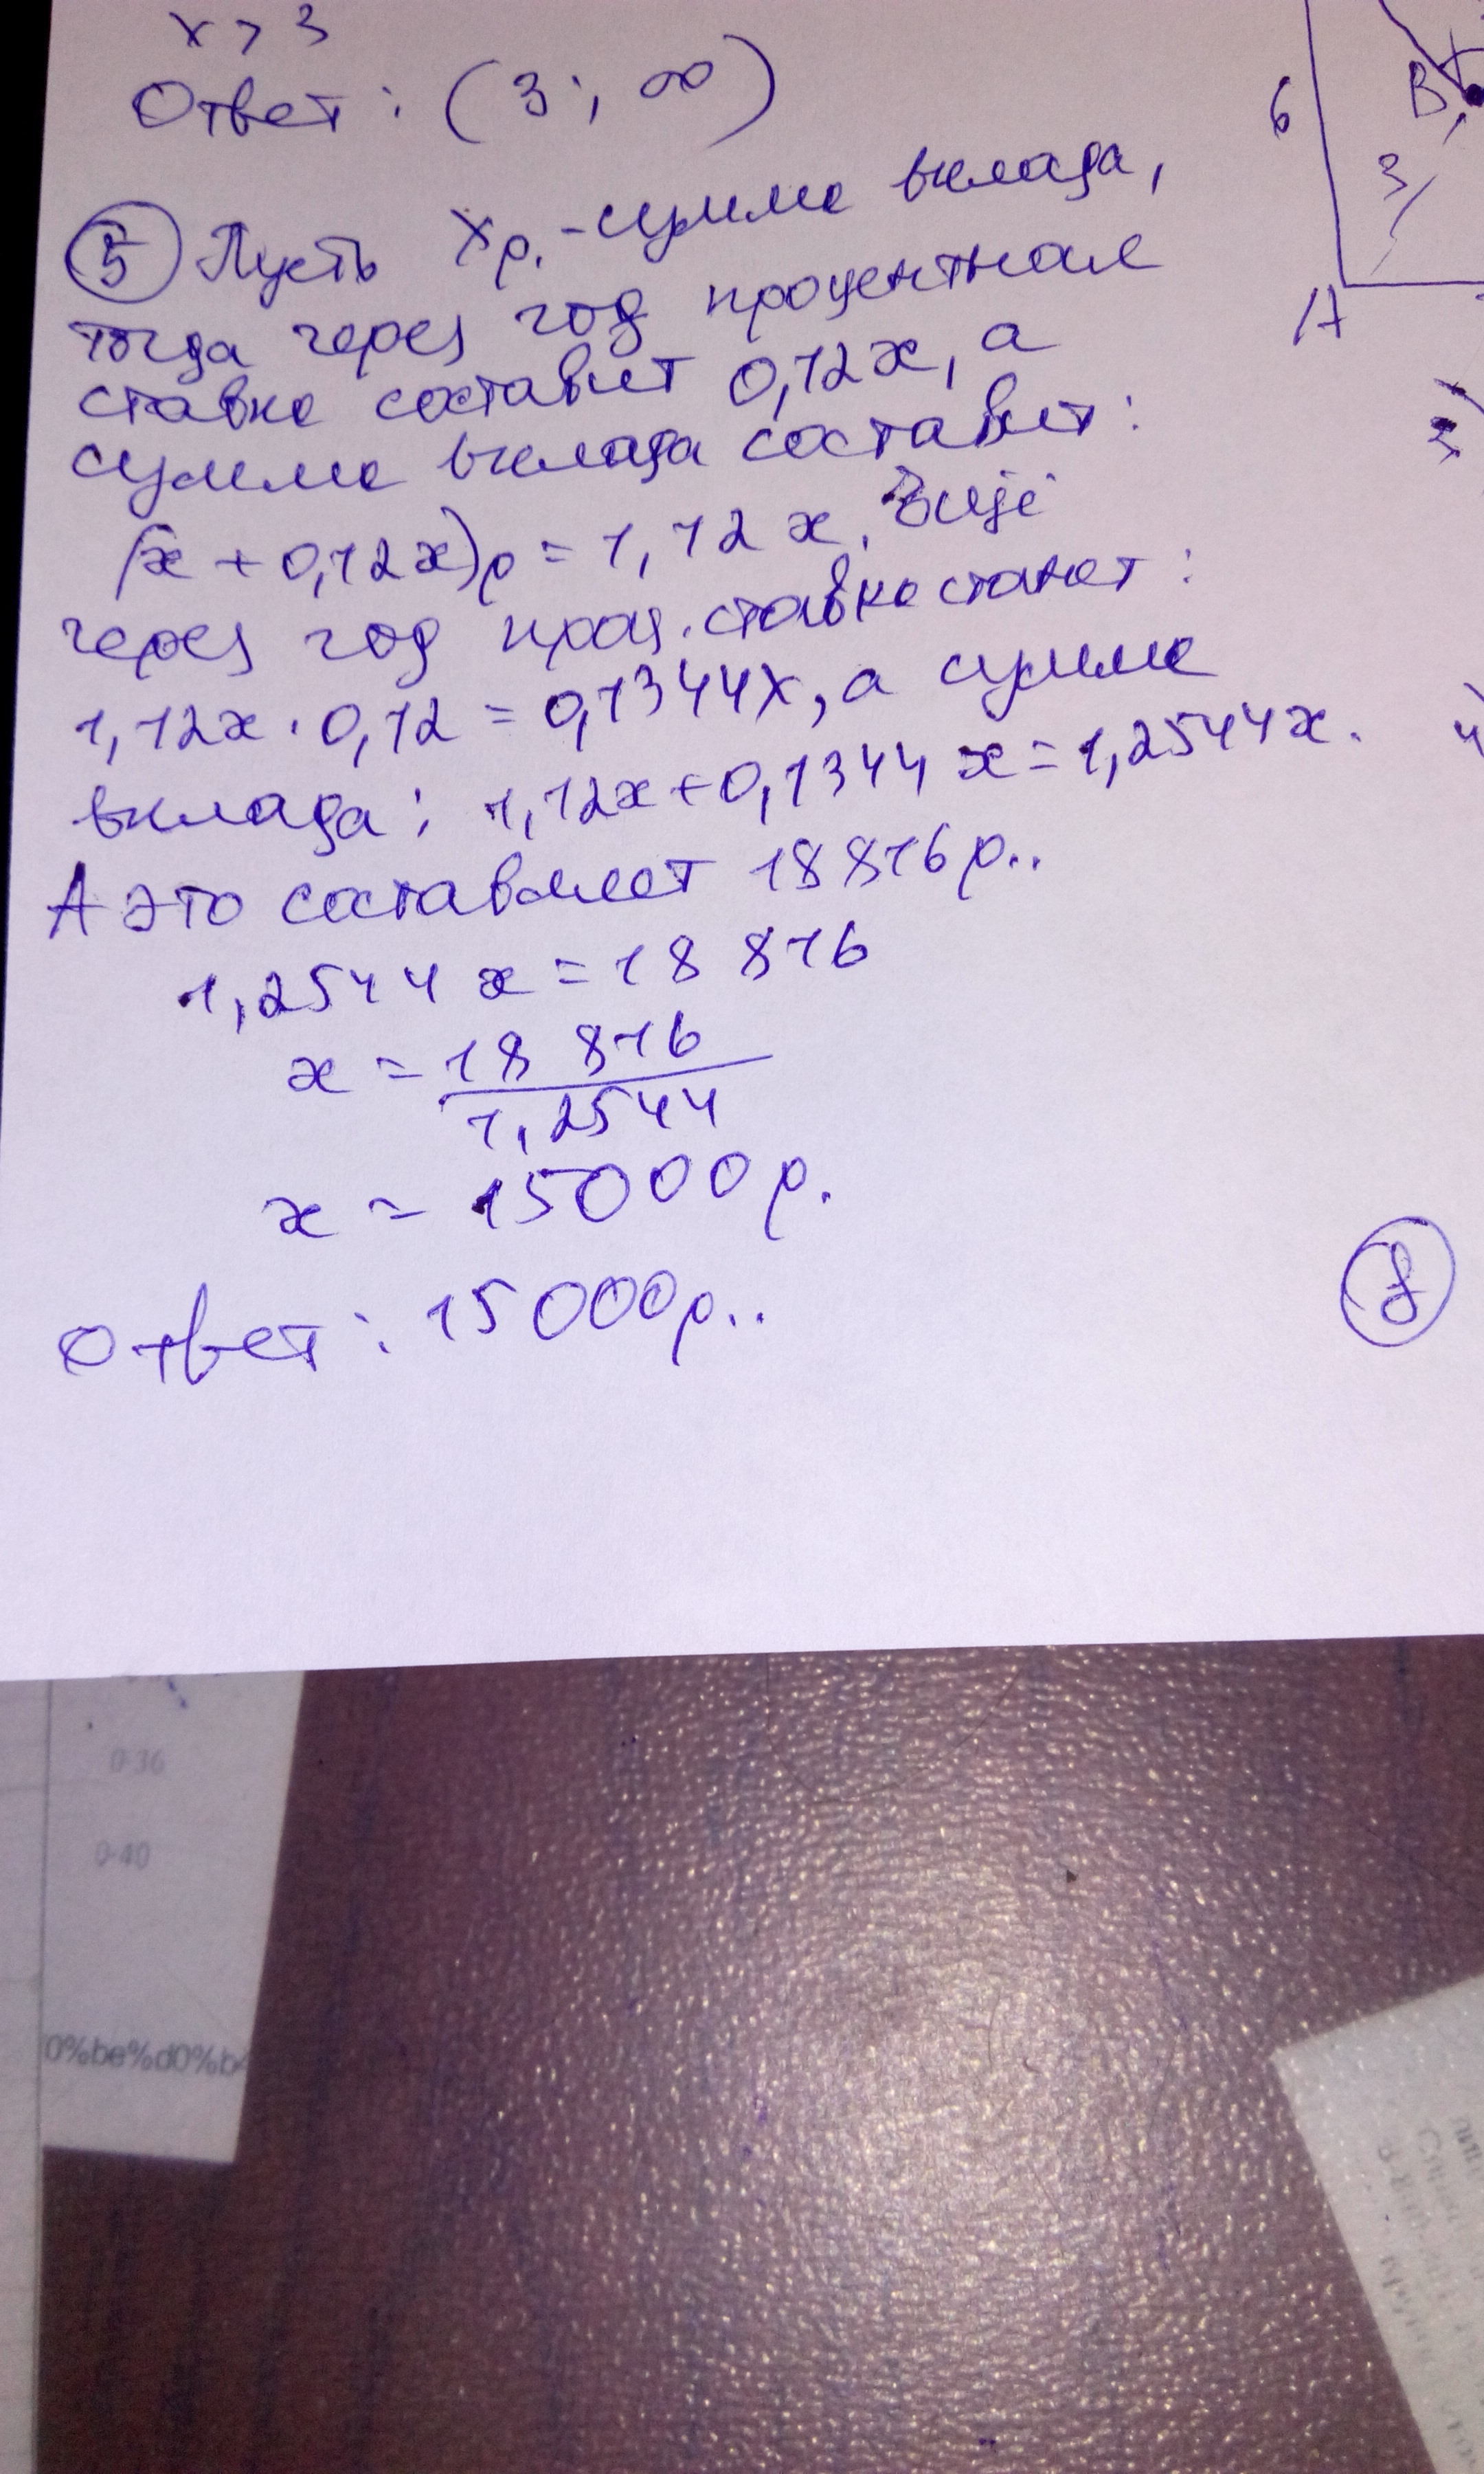 x > 3
Ответ: (3; ∞)
⑤ Пусть x р. - сумма вклада,
тогда через год процентная
ставка составит 0,12x, а
сумма вклада составит:
(x + 0,12x)р = 1,12x. Ещё
через год проц. ставка станет:
1,12x · 0,12 = 0,1344x, а сумма
вклада: 1,12x + 0,1344x = 1,2544x.
А это составляет 18816р..
1,2544x = 18 816
x = 18 816
1,2544
x = 15000р.
Ответ: 15000р..
6
B
3
A
3)
⑧
0-36
0-40
0%be%d0%b